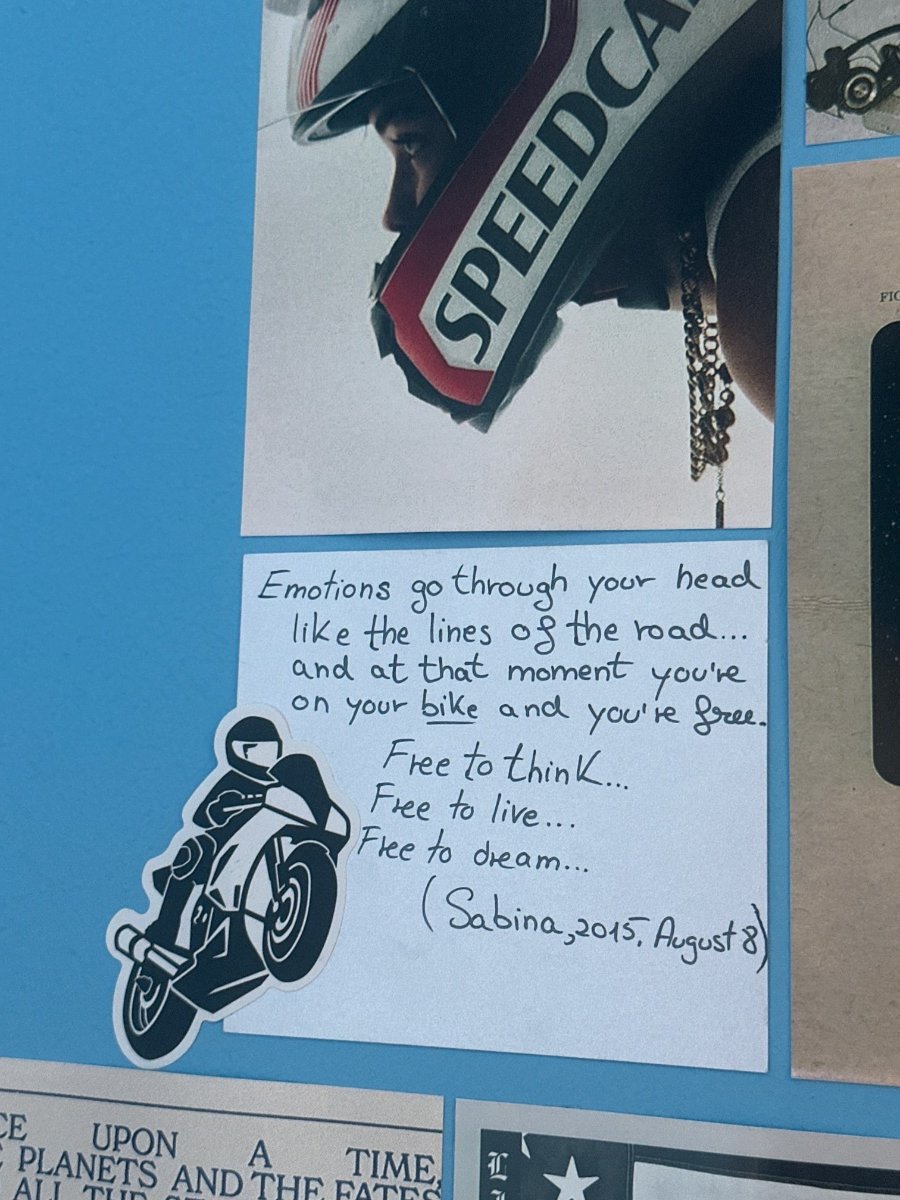 SPEEDCA
FIC
Emotions go through your head
like the lines of the road...
and at that moment you're
on your bike and you're free.
Free to think...
Free to live...
Free to dream...
(Sabina, 2015, August 8)
CE UPON A TIME,
PLANETS AND THE FATES
ALL THE
L